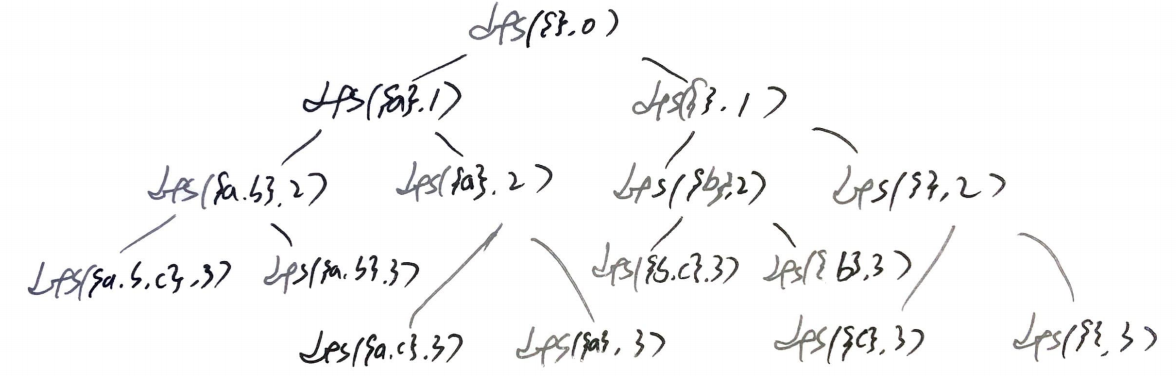 dfs({},0)
dfs({a},1) dfs({},1)
dfs({a.b},2) dfs({a},2) dfs({b},2) dfs({},2)
dfs({a.b.c},3) dfs({a.b},3) dfs({b.c},3) dfs({b},3)
dfs({a.c},3) dfs({a},3) dfs({c},3) dfs({},3)